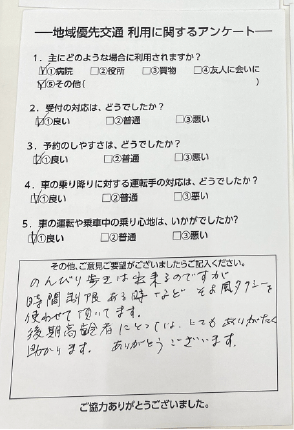 地域優先交通 利用に関するアンケート
1．主にどのような場合に利用されますか？
☑①病院 □②役所 □③買物 □④友人に会いに
☑⑤その他( )
2．受付の対応は、どうでしたか？
☑①良い □②普通 □③悪い
3．予約のしやすさは、どうでしたか？
☑①良い □②普通 □③悪い
4．車の乗り降りに対する運転手の対応は、どうでしたか？
☑①良い □②普通 □③悪い
5．車の運転や乗車中の乗り心地は、いかがでしたか？
☑①良い □②普通 □③悪い
その他、ご意見ご要望がございましたらご記入ください。
のんびり歩きは出来るのですが
時間制限ある時などそよ風タクシーを
使わせて頂いてます。
後期高齢者にとっては、とてもありがたく
助かります。 ありがとうございます。
ご協力ありがとうございました。